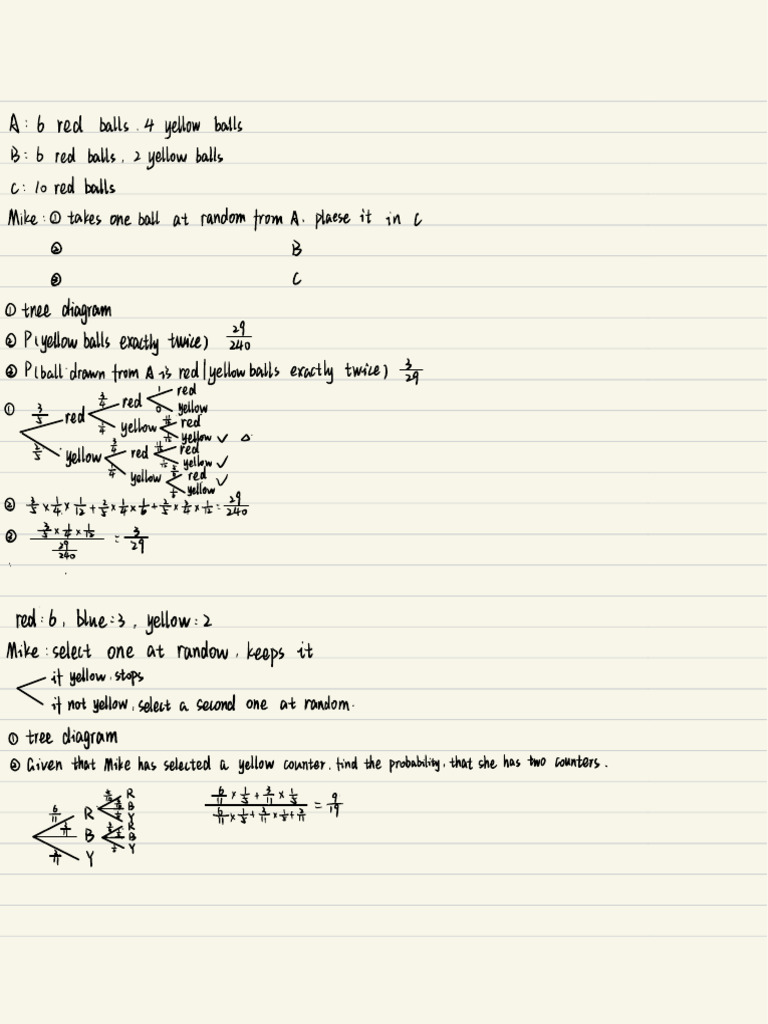 A: 6 red balls. 4 yellow balls
B: 6 red balls. 2 yellow balls
C: 10 red balls
Mike: ① takes one ball at random from A. plaese it in C
② B
③ C
① tree diagram
② P(yellow balls exactly twice) 29/240
③ P(ball drawn from A is red|yellow balls exactly twice) 3/29
① 3/5 red 3/4 red 1 red
0 yellow
1/4 yellow 11/12 red
1/12 yellow ✓ △
2/5 yellow 3/4 red 11/12 red
1/12 yellow ✓
1/4 yellow 5/6 red ✓
1/6 yellow
② 3/5 × 1/4 × 1/12 + 2/5 × 1/4 × 5/6 + 2/5 × 3/4 × 1/12 = 29/240
③ (3/5 × 1/4 × 1/12) / (29/240) = 3/29
red: 6, blue: 3, yellow: 2
Mike: select one at randow, keeps it
if yellow, stops
if not yellow, select a second one at random.
① tree diagram
② Given that Mike has selected a yellow counter, find the probability, that she has two counters.
6/11 R R B Y
3/11 B R B Y
2/11 Y
(6/11 × 1/5 + 3/11 × 1/5) / (6/11 × 1/5 + 3/11 × 1/5 + 2/11) = 9/19